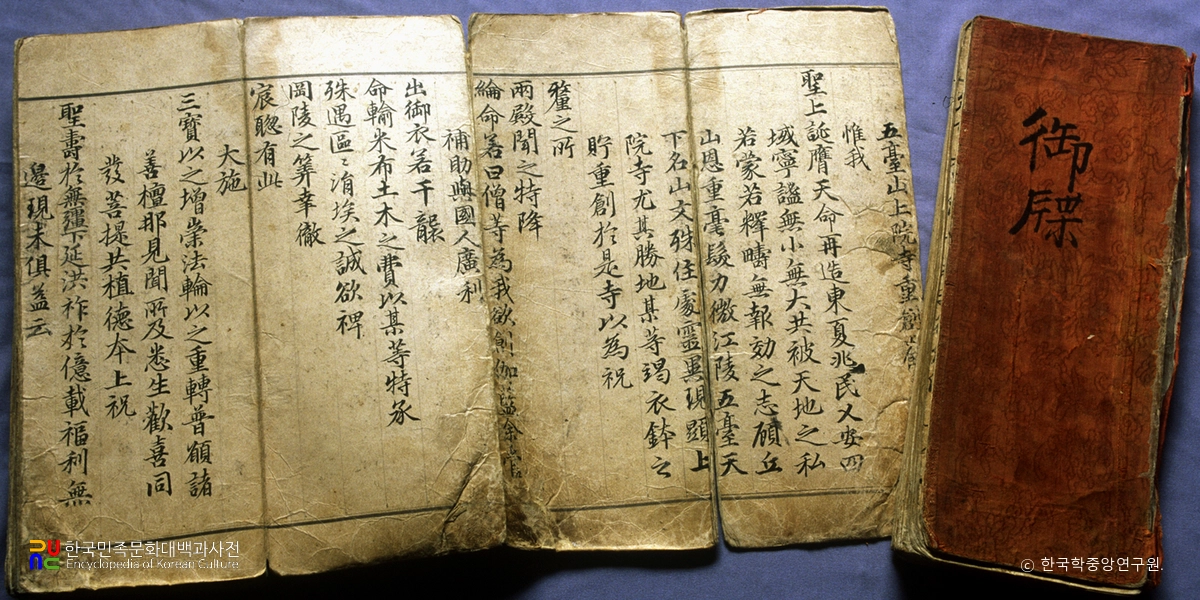 五臺山上院寺重創
惟我
聖上誕膺天命再造東夏兆民乂安四
域寧謐無小無大共被天地之私
若蒙若輝疇無報効之志顧丘
山恩重毫髮力微江陵五臺天
下名山文殊住處靈異現顯上
院寺尤其勝地某等竭衣鉢之
貯重創於是寺以為祝
釐之所
兩殿聞之特降
綸命若曰僧等為我欲創伽藍余
補助與國人廣利
出御衣若干襲
命輸米布土木之費以某等特承
殊遇區〻涓埃之誠欲裨
岡陵之筭幸徹
宸聰有此
大施
三寶以之增崇法輪以之重轉普願諸
善檀那見聞所及悉生歡喜同
發菩提共植德本上祝
聖壽於無疆下延洪祚於億載福利無
邊現未俱益云
御牒
한국민족문화대백과사전
Encyclopedia of Korean Culture
© 한국학중앙연구원.